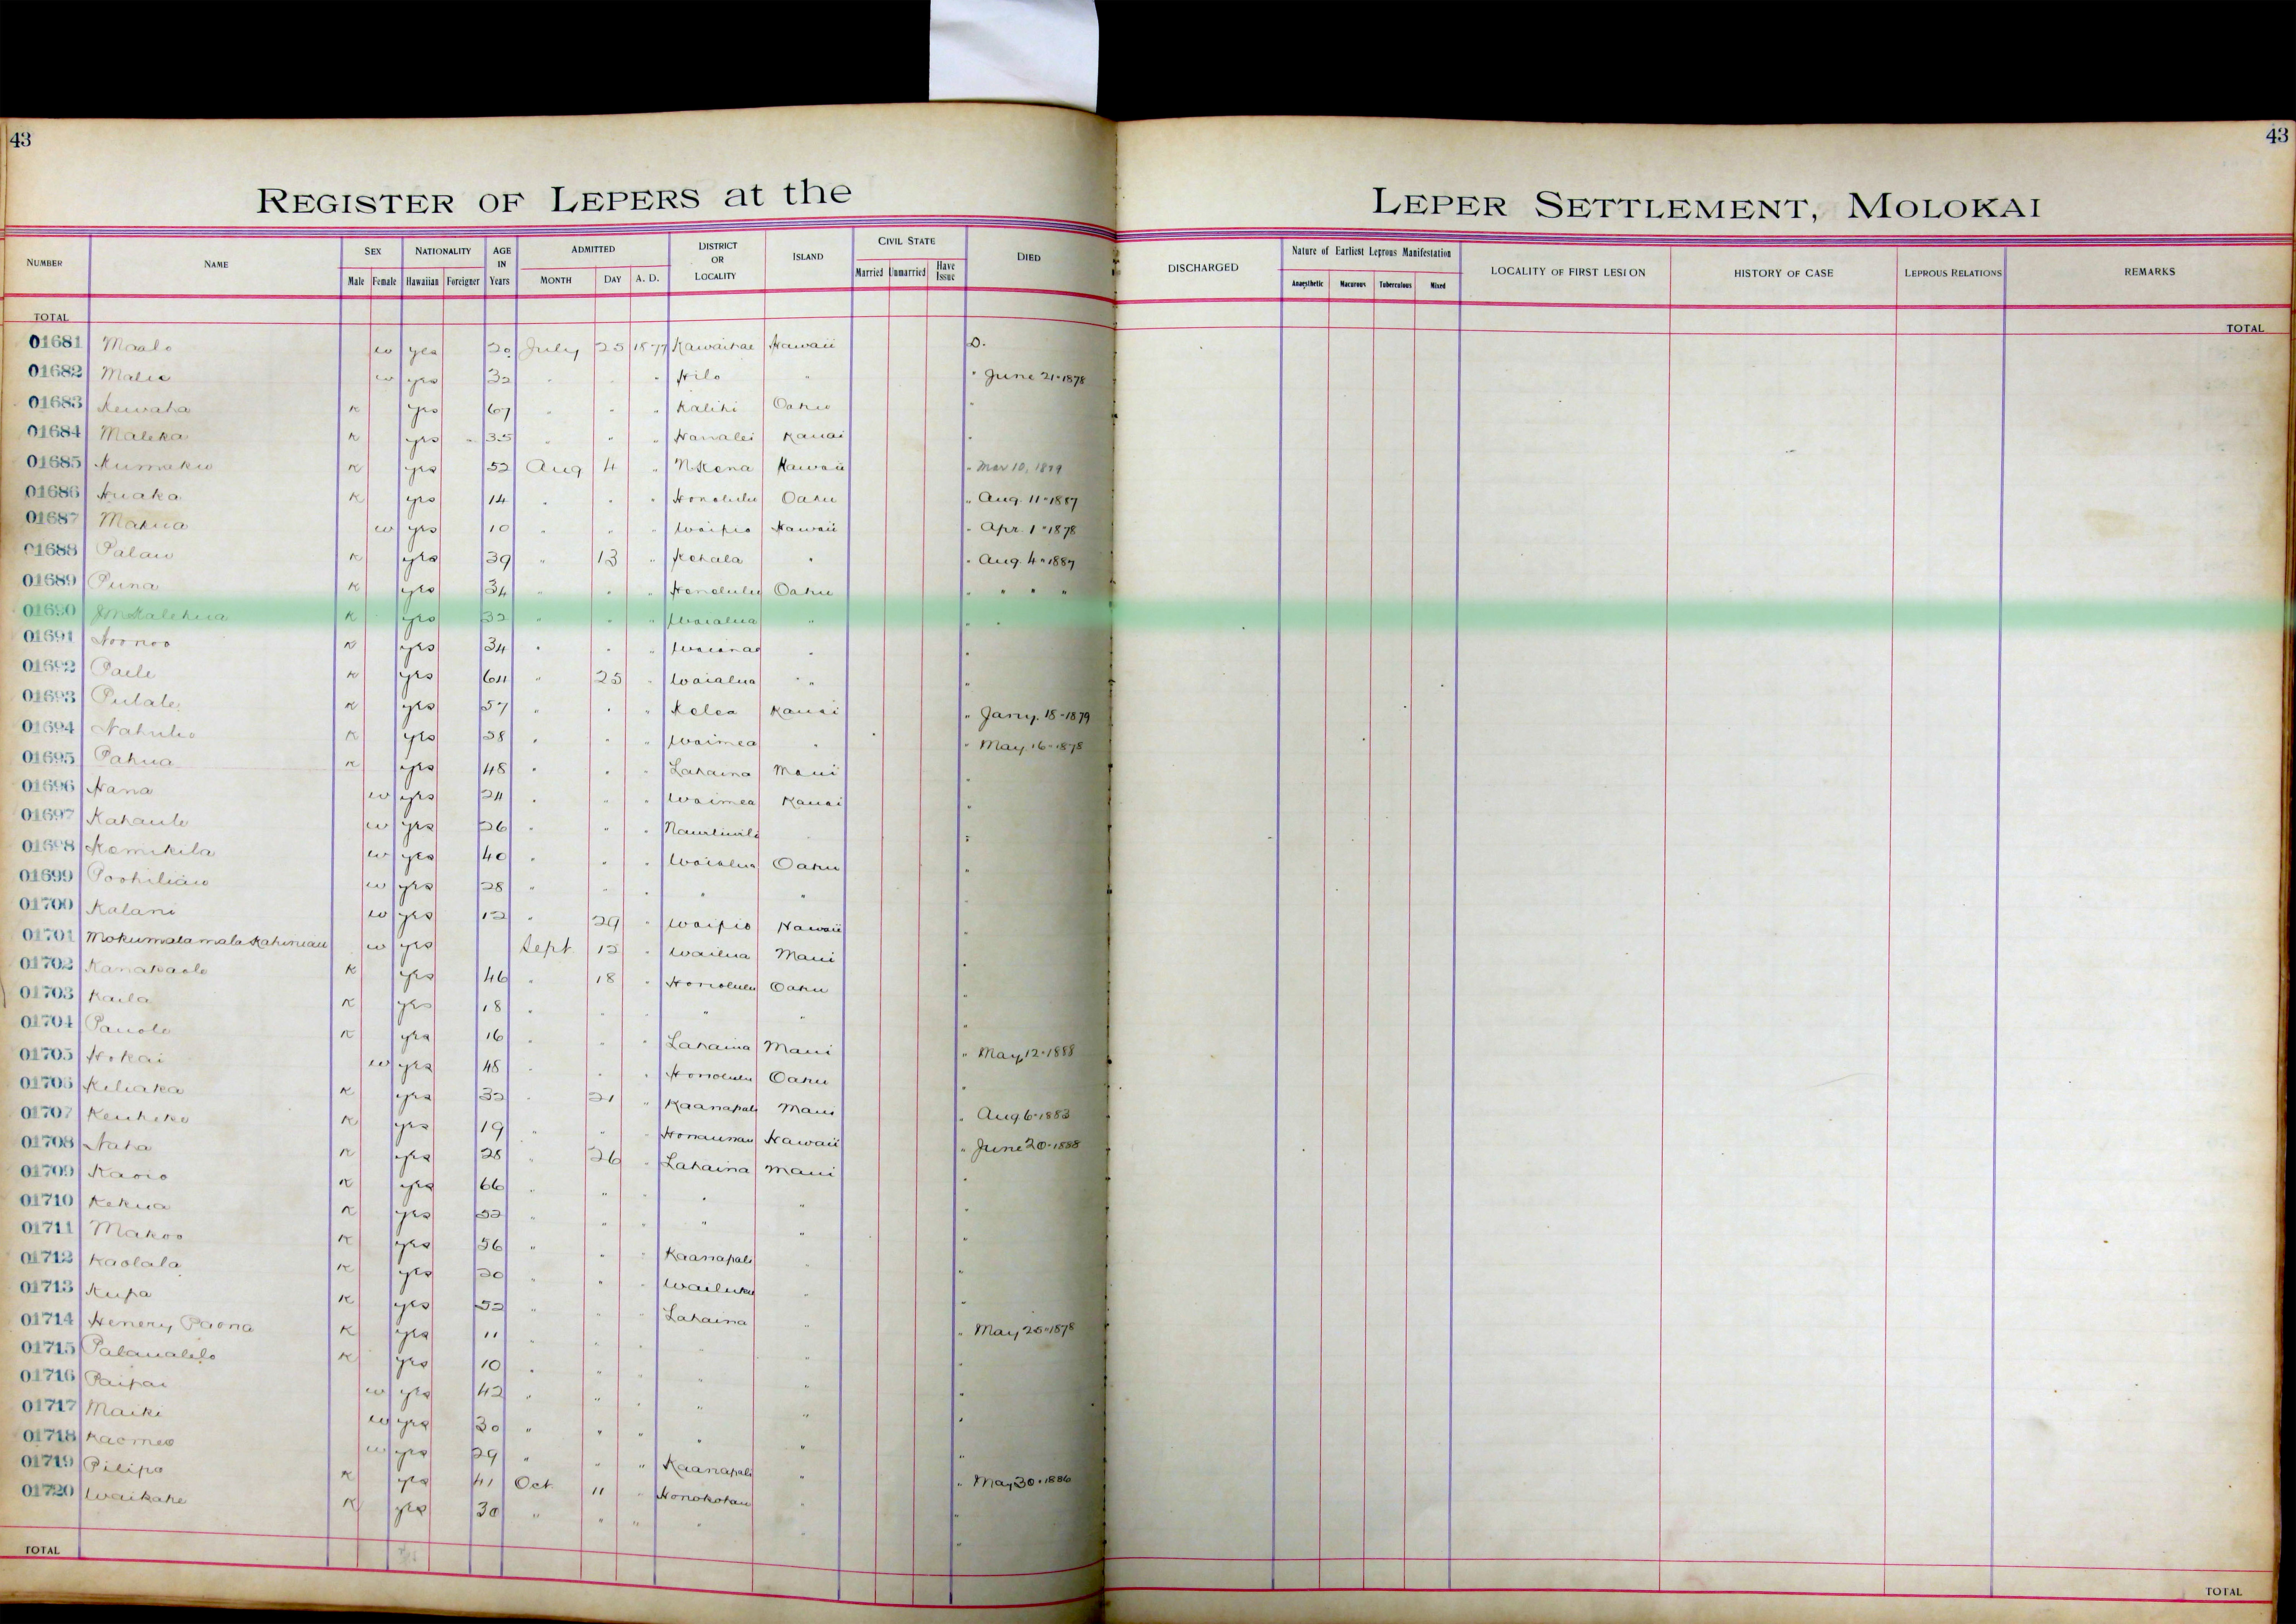 43
43
REGISTER OF LEPERS at the LEPER SETTLEMENT, MOLOKAI
NUMBER NAME SEX Male Female NATIONALITY Hawaiian Foreigner AGE IN Years ADMITTED MONTH DAY A. D. DISTRICT OR LOCALITY ISLAND CIVIL STATE Married Unmarried Have Issue DIED DISCHARGED Nature of Earliest Leprous Manifestation Anaesthetic Macurous Tuberculous Mixed LOCALITY OF FIRST LESION HISTORY OF CASE LEPROUS RELATIONS REMARKS
TOTAL TOTAL
01681 Maalo w yes 20 July 25 1877 Kawaihae Hawaii D.
01682 Malie w yes 32 " " " Hilo " " June 21-1878
01683 Kewaha K yes 67 " " " Kalihi Oahu "
01684 Maleka K yes 35 " " " Hanalei Kauai "
01685 Kumaku K yes 52 Aug 4 " N Kona Hawaii " Mar 10, 1879
01686 Huaka K yes 14 " " " Honolulu Oahu " Aug. 11-1887
01687 Mahua w yes 10 " " " Waipio Hawaii " Apr. 1-1878
01688 Palau K yes 39 " 13 " Kohala " " Aug. 4-1887
01689 Puna K yes 34 " " " Honolulu Oahu " " " "
01690 K yes 32 " " " Waialua " " "
01691 Noonoo K yes 34 " " " Waianae " "
01692 Paele K yes 64 " 25 " Waialua " " "
01693 Pulale K yes 57 " " " Kolea Kauai " Jany. 18-1879
01694 Nahulu K yes 28 " " " Waimea " " May 16-1878
01695 Pahua K yes 48 " " " Lahaina Maui "
01696 Hana w yes 24 " " " Waimea Kauai "
01697 Kahaule w yes 26 " " " Nawiliwili "
01698 Kamikila w yes 40 " " " Waialua Oahu "
01699 Poohiliau w yes 28 " " " " "
01700 Kalani w yes 12 " 29 " Waipio Hawaii
01701 Mokumalamala Kahiniau w yes Sept 12 " Wailua Maui "
01702 Kanakaole K yes 46 " 18 " Honolulu Oahu "
01703 Kaila K yes 18 " " " " " "
01704 Pauole K yes 16 " " " Lahaina Maui "
01705 Hokai w yes 48 " " " Honolulu Oahu " May 12-1888
01706 Keliaka K yes 32 " 21 " Kaanapali Maui "
01707 Keuheke K yes 19 " " " Honaunau Hawaii " Aug 6-1883
01708 Naha K yes 28 " 26 " Lahaina Maui " June 20-1888
01709 Kaoio K yes 66 " " " " " "
01710 Kekua K yes 52 " " " " " "
01711 Makoo K yes 56 " " " Kaanapali " "
01712 Kaolala K yes 20 " " " Wailuku " "
01713 Kupa K yes 52 " " " Lahaina " "
01714 Henery Paona K yes 11 " " " " " " May 25-1878
01715 Palaualelo K yes 10 " " " " " "
01716 Paipai w yes 42 " " " " " "
01717 Maiki w yes 30 " " " " " "
01718 Kaomea w yes 29 " " " Kaanapali " "
01719 Pilipo K yes 41 Oct 11 " Honokohau " " May 30-1886
01720 Waikahe K yes 30 " " " " " "
TOTAL TOTAL